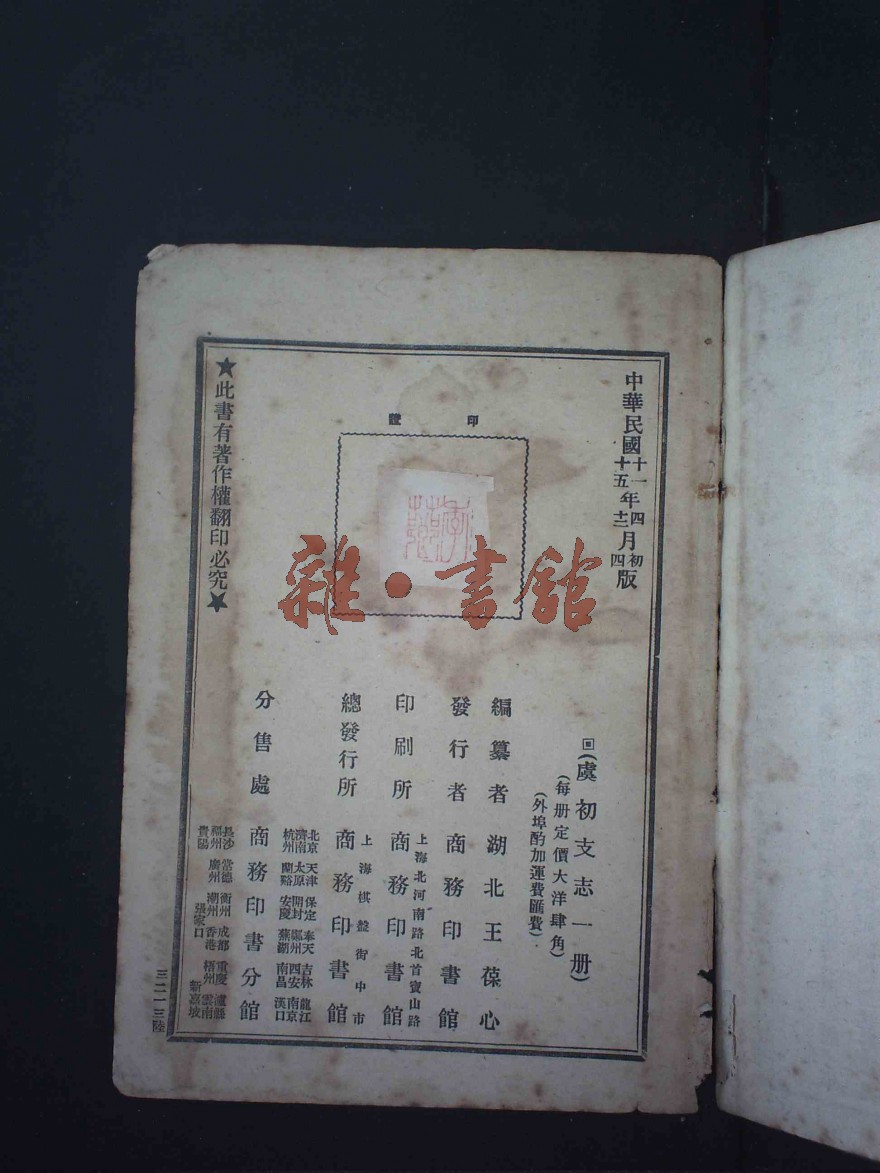 中華民國十一年四月初版
十五年十二月四版
印 證
回(虞初支志一册)
(每册定價大洋肆角)
(外埠酌加運費匯費)
編纂者 湖北王葆心
發行者 商務印書館
上海北河南路北首寶山路
印刷所 商務印書館
上海棋盤街中市
總發行所 商務印書館
北京 天津 保定 奉天 吉林 龍江
濟南 太原 開封 鄭州 西安 南京
杭州 蘭谿 安慶 蕪湖 南昌 漢口
分售處 商務印書分館
長沙 常德 衡州 成都 重慶 瀘縣
福州 廣州 潮州 香港 梧州 雲南
貴陽 張家口 新嘉坡
★此書有著作權翻印必究★
三二一三陸
雜·書館